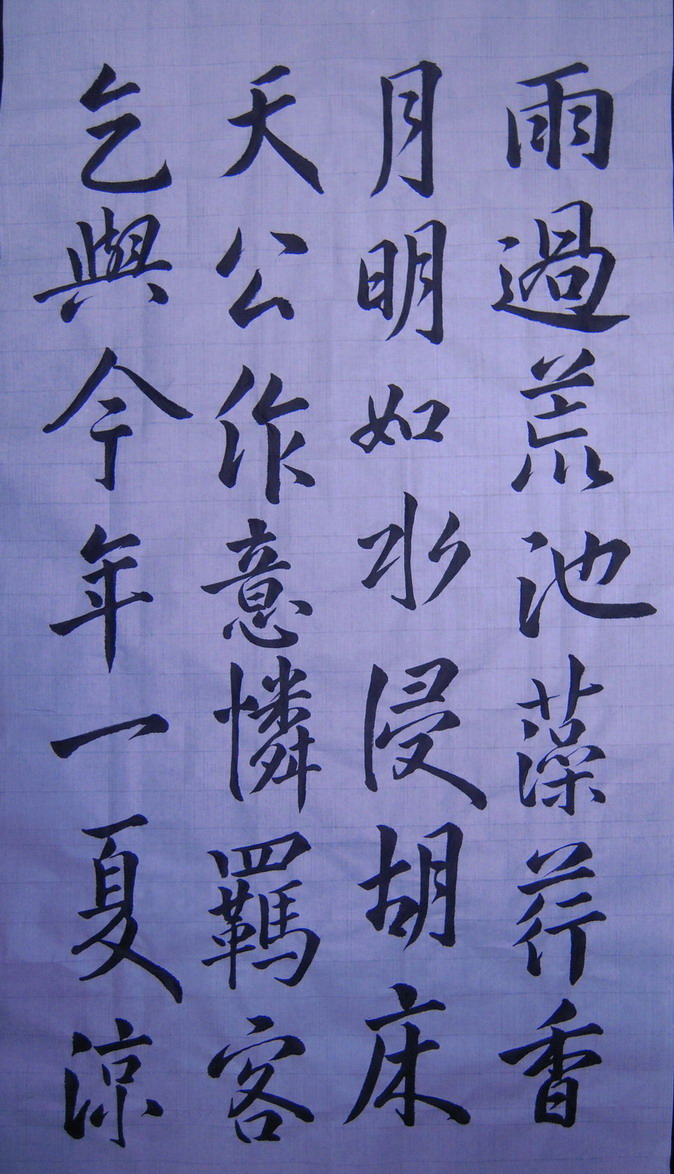 雨過荒池藻荇香
月明如水浸胡床
天公作意憐羈客
乞與今年一夏涼